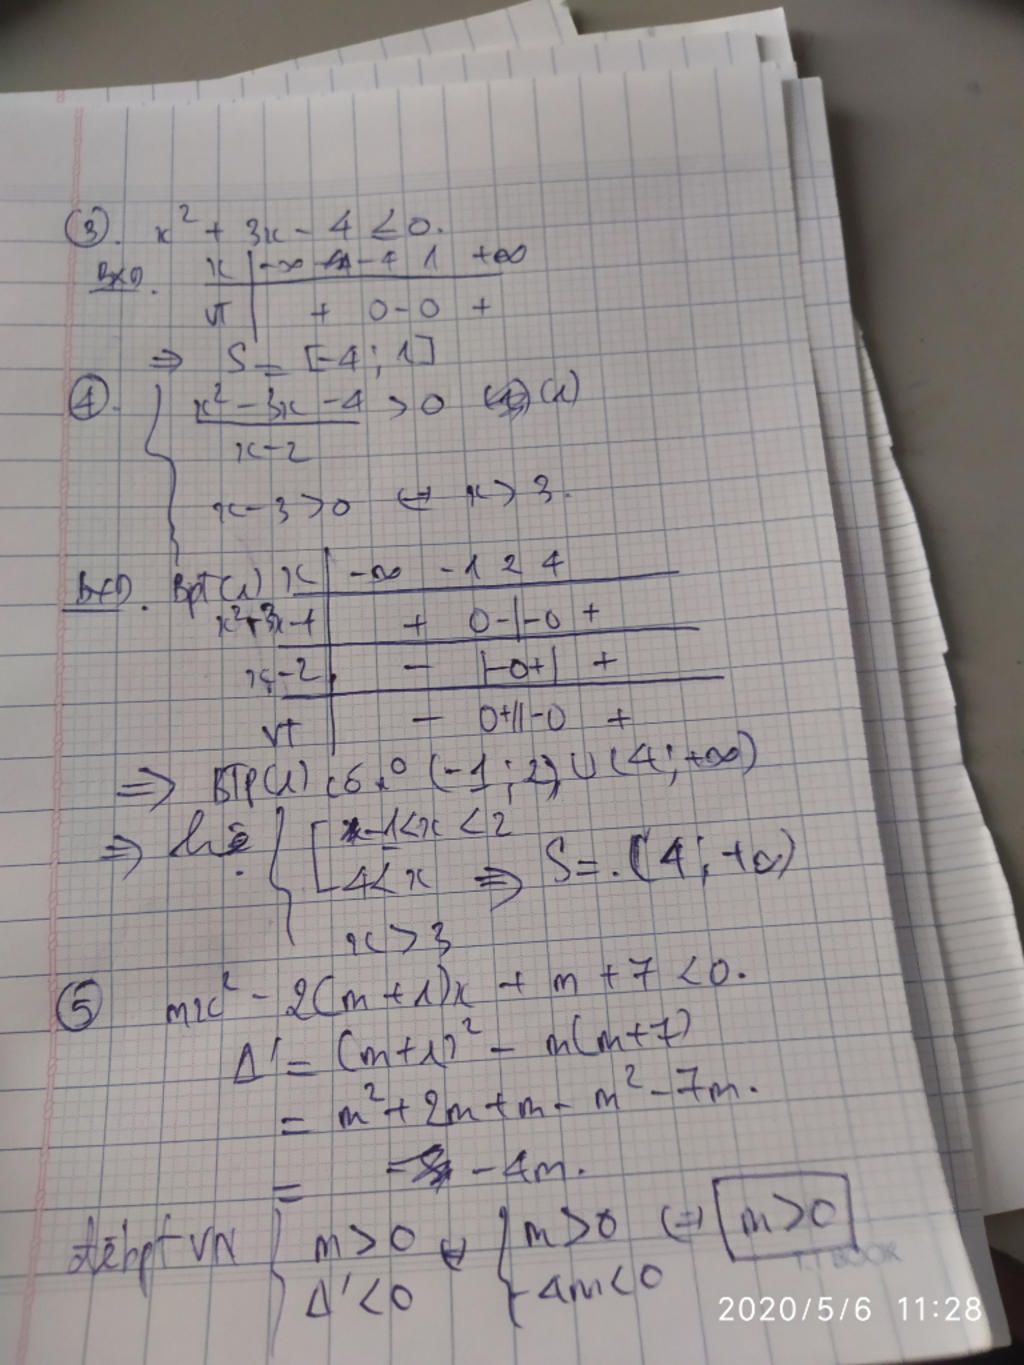 ③. x² + 3x - 4 ≤ 0.
BXD. x | -∞ -4 1 +∞
VT | + 0 - 0 +
⇒ S = [-4; 1]
④. { (x² - 3x - 4)/(x - 2) > 0 (1)
x - 3 > 0 ⇔ x > 3.
BXD. Bpt(1) x | -∞ -1 2 4
x² + 3x - 4 | + 0 - | - 0 +
x - 2 | - | - 0 + | +
VT | - 0 + || - 0 +
⇒ BTP(1) có (-1; 2) ∪ (4; +∞)
⇒ { [ -1 < x < 2
4 < x ⇒ S = . (4; +∞)
x > 3
⑤ mx² - 2(m+1)x + m + 7 < 0.
Δ' = (m+1)² - m(m+7)
= m² + 2m + m - m² - 7m.
= - 4m.
Để bpt VN { m > 0 ⇔ { m > 0 ⇔ m > 0
Δ' < 0 -4m < 0
T.T BOOK
2020/5/6 11:28